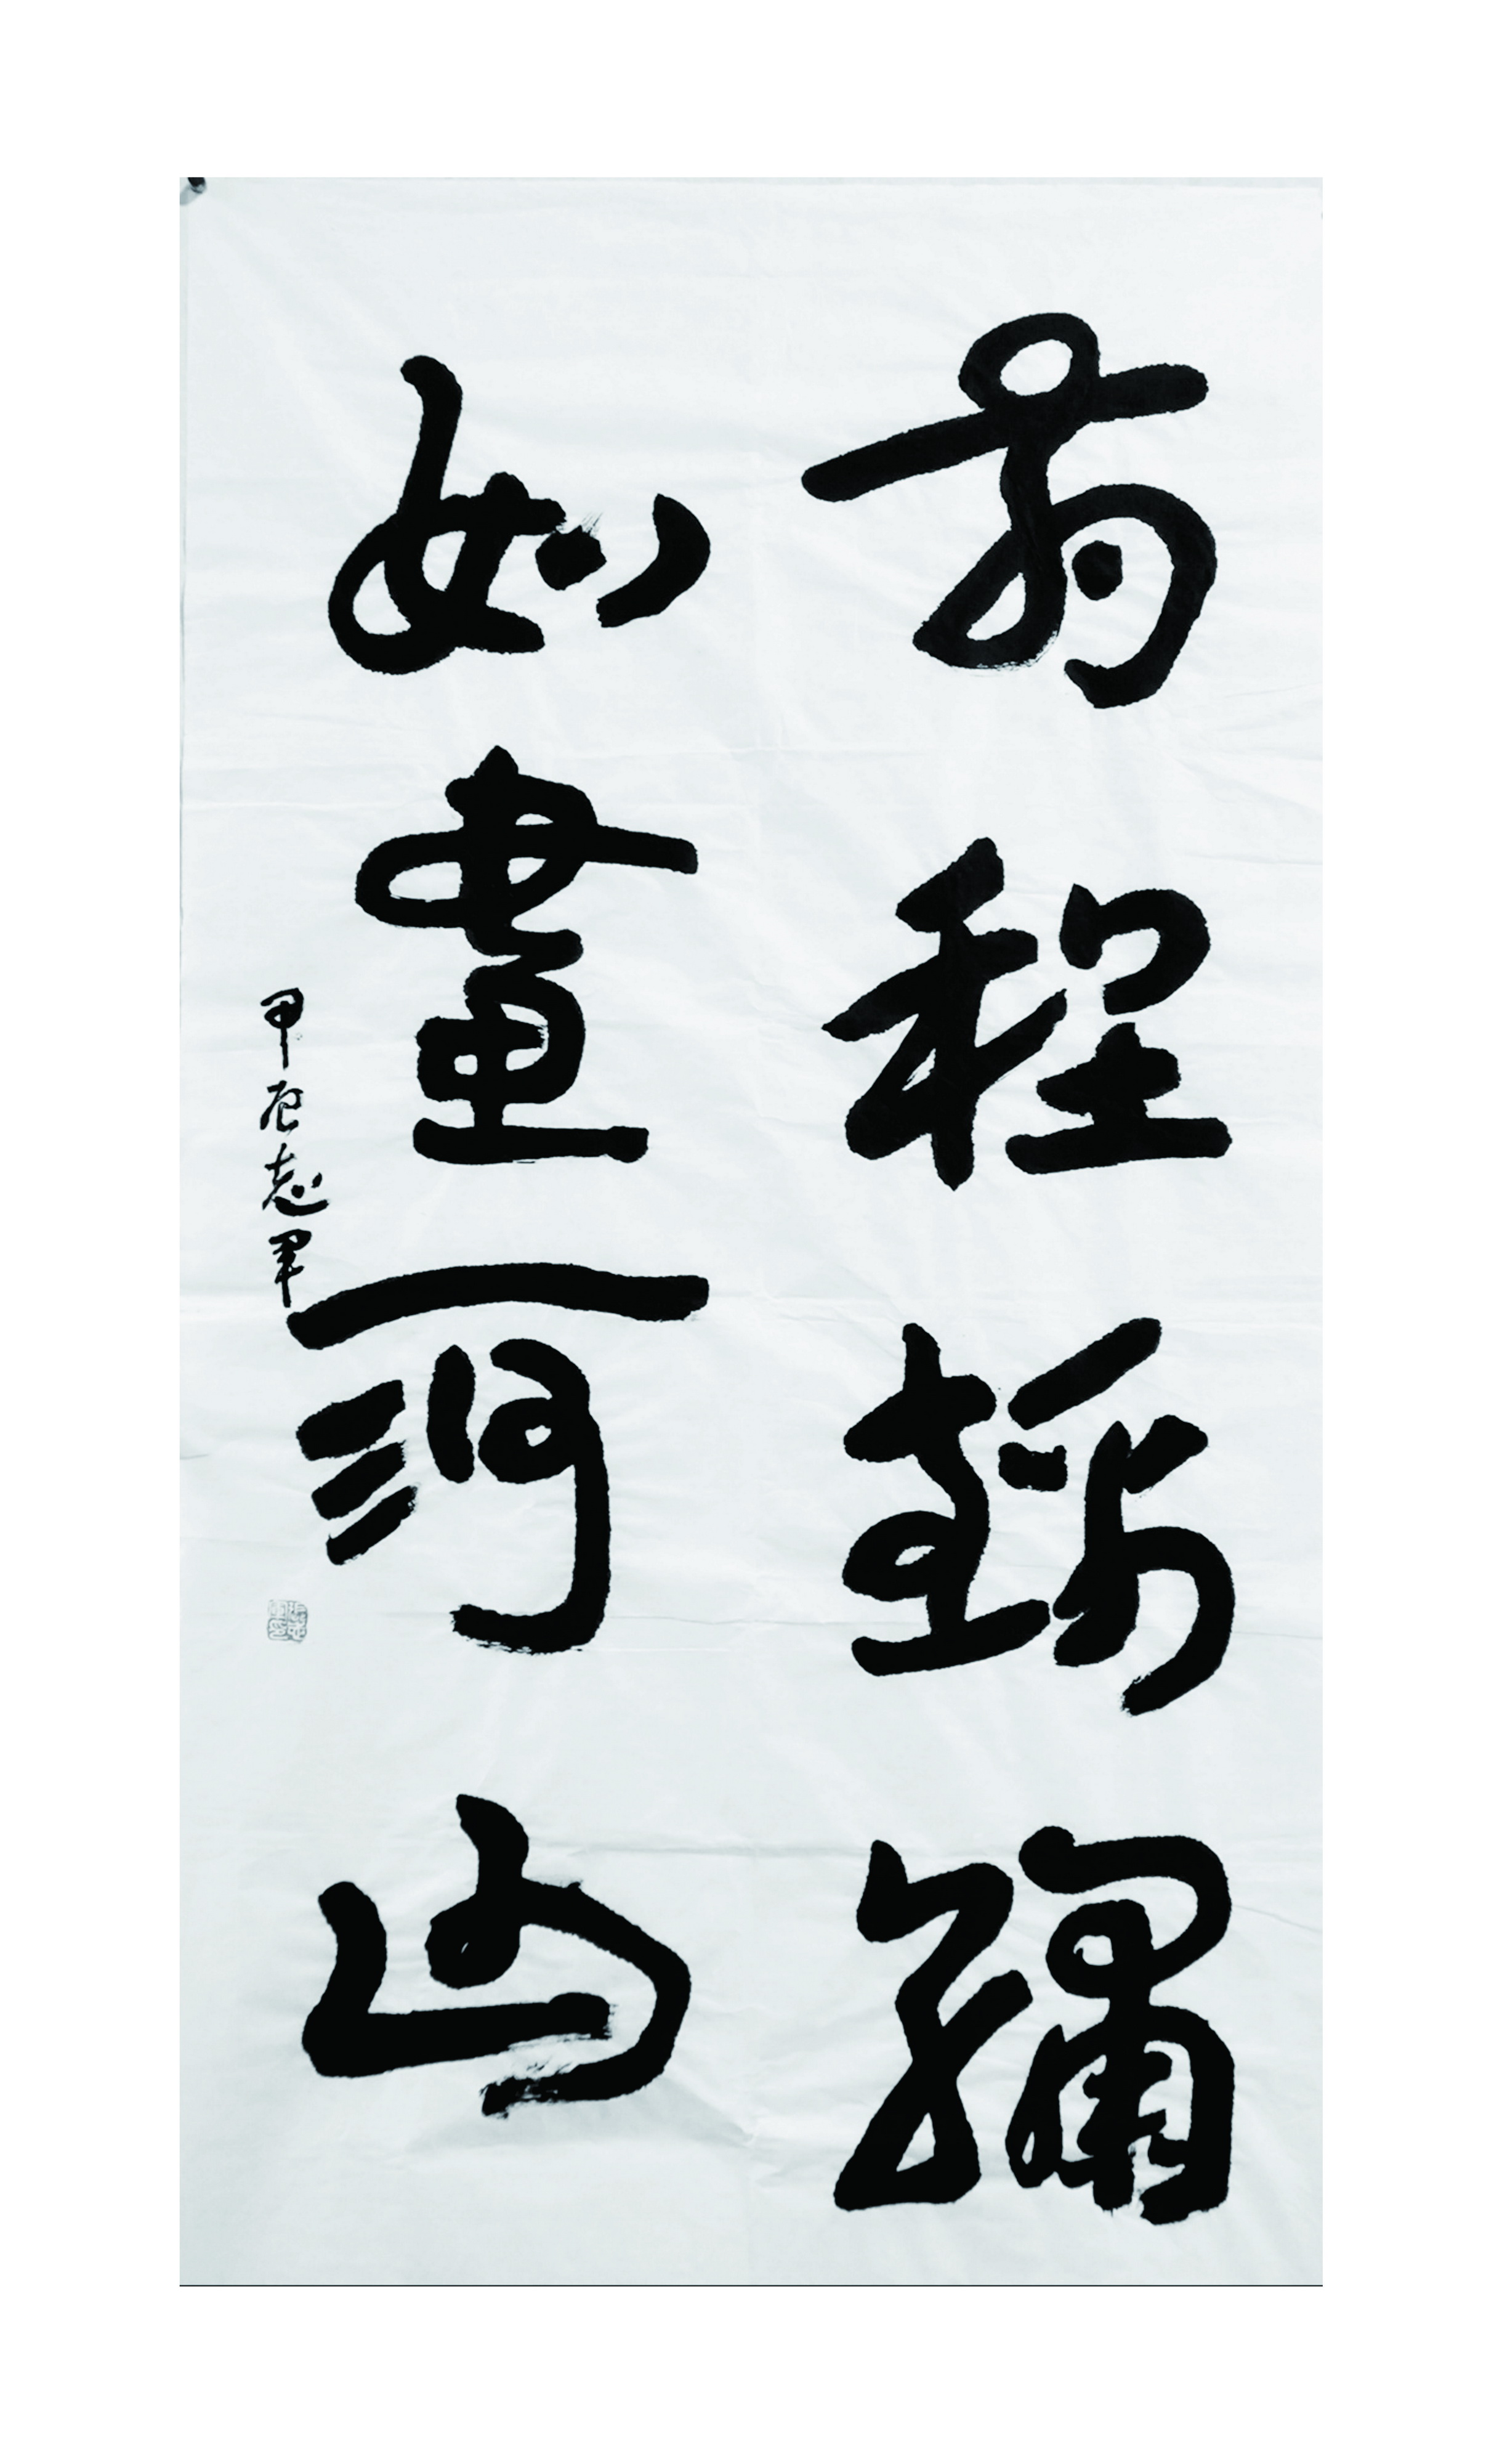 前程錦繡
如畫河山
甲辰志軍